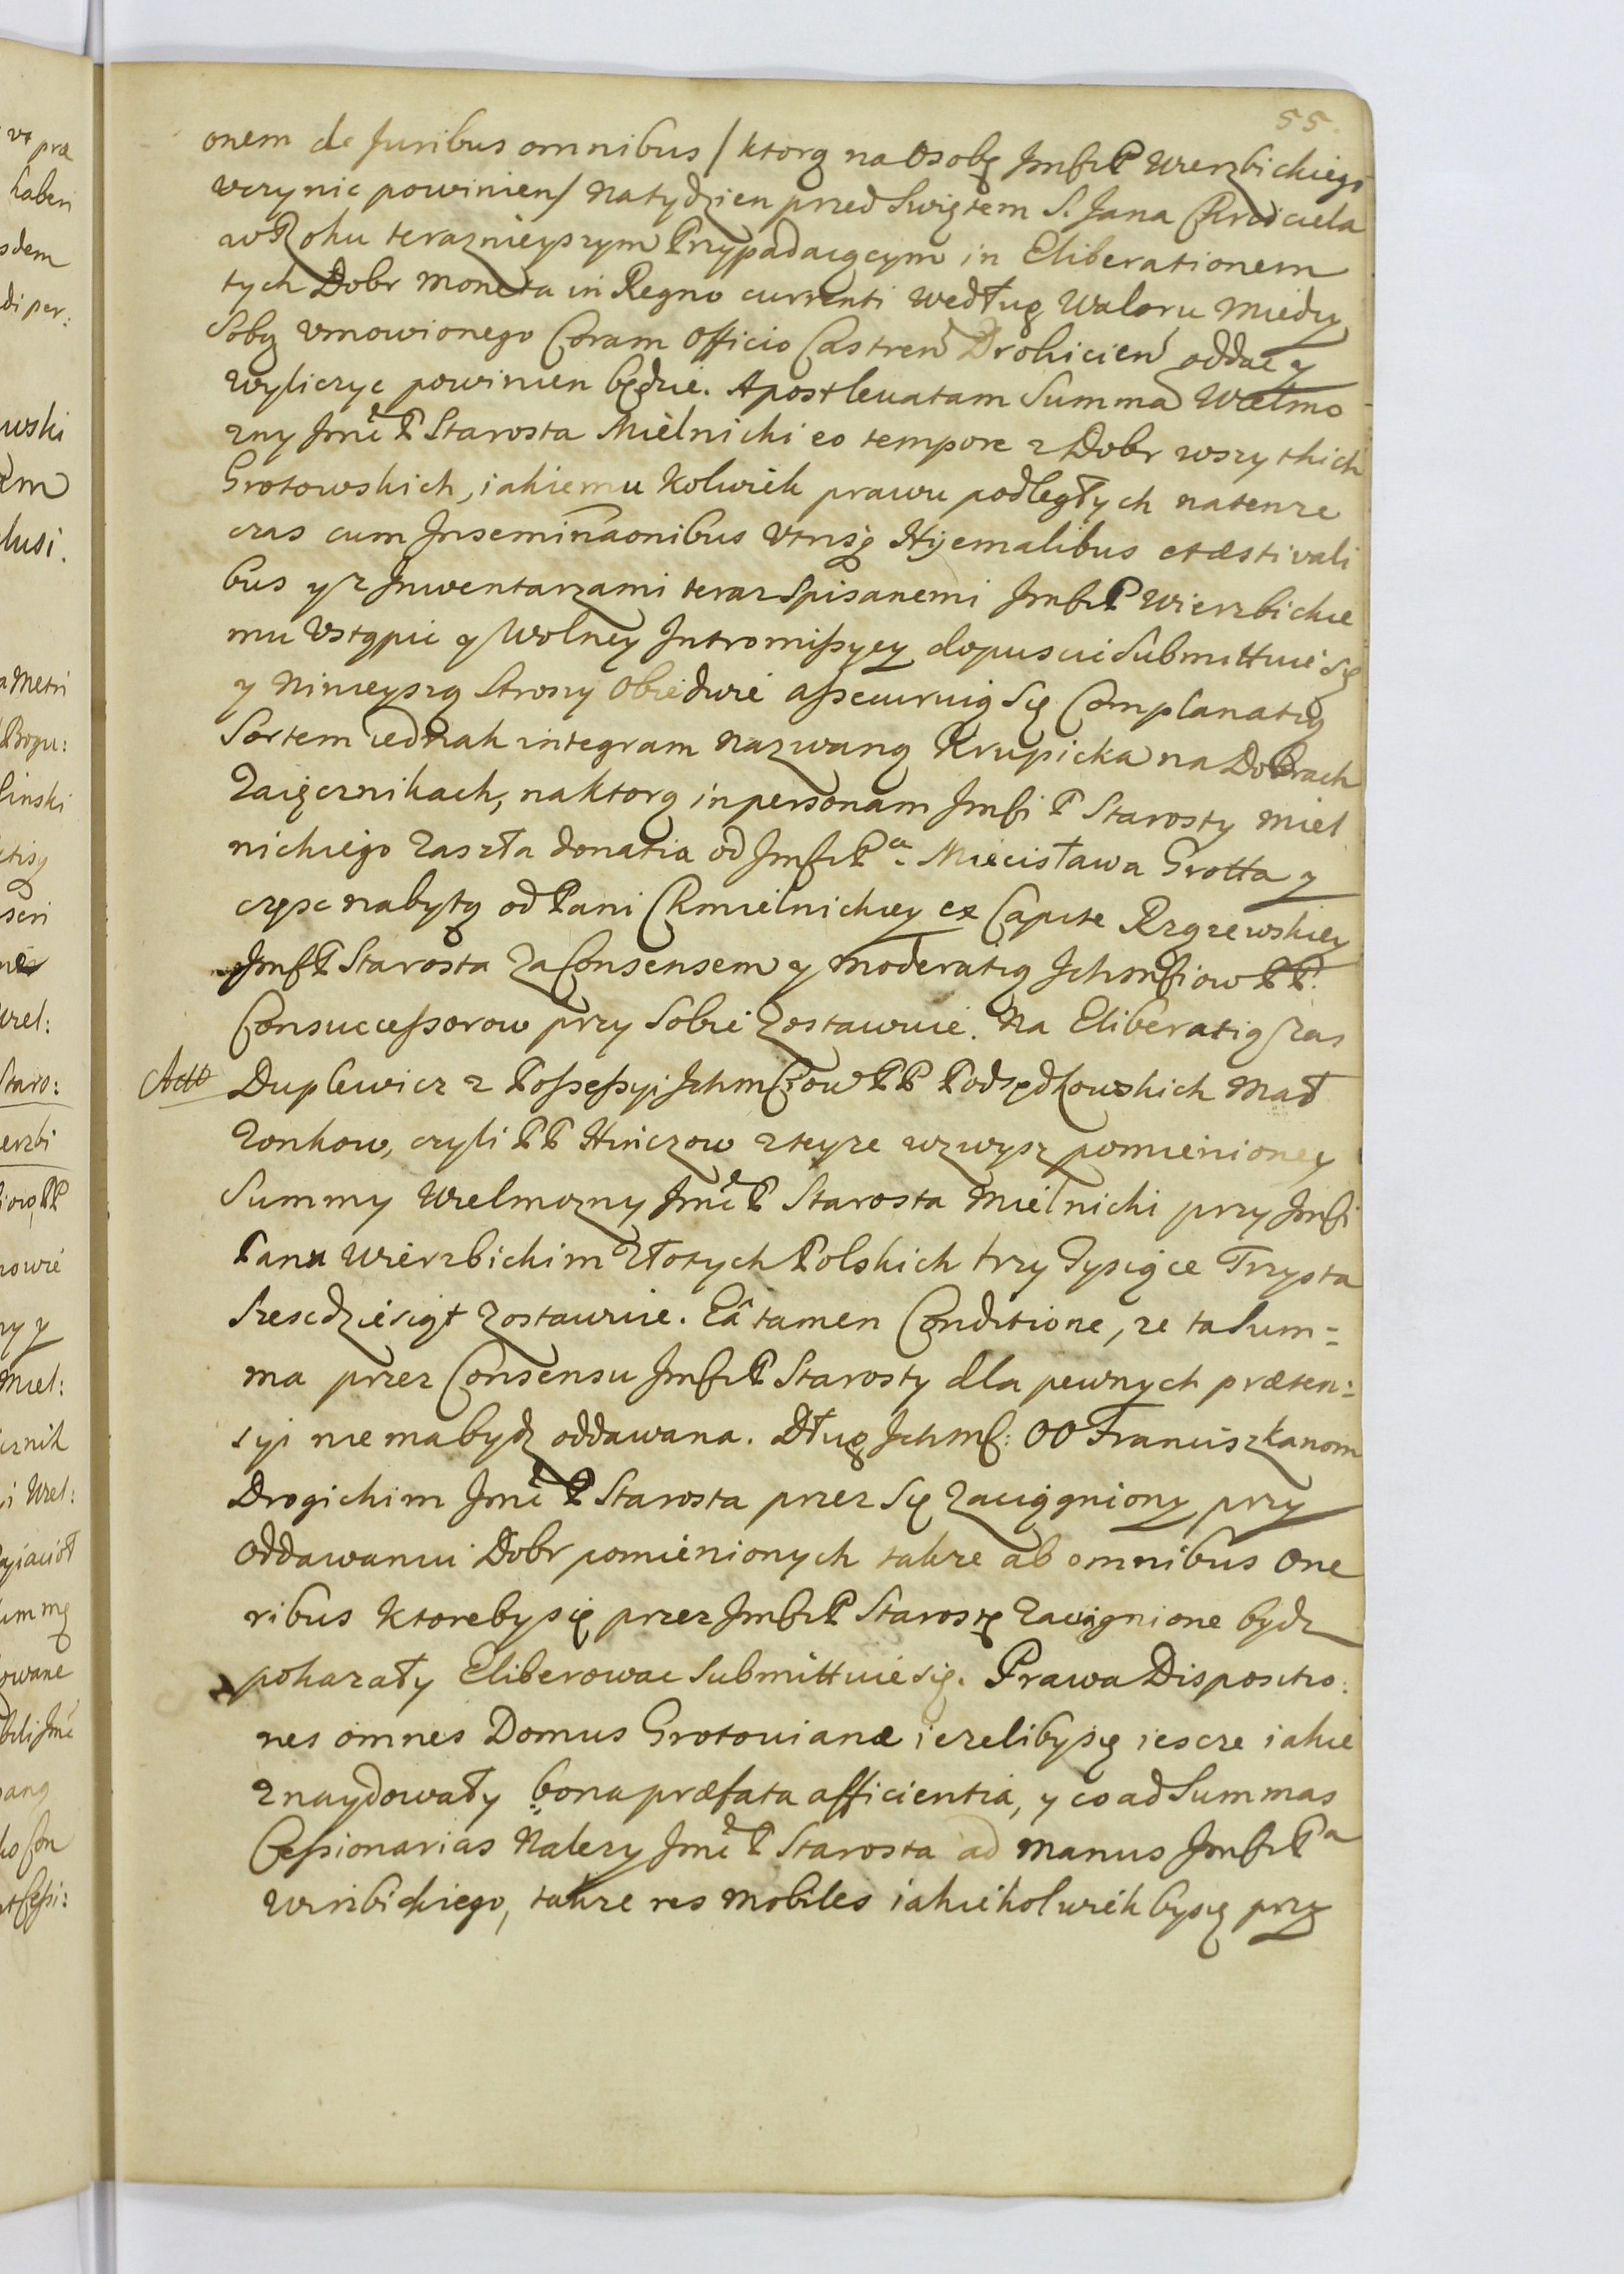 55.
onem de Juribus omnibus / ktorą na Osobę Jmści P Wierzbickiego
vczynic powinien / na tydzien przed Swiętem S. Jana Chrzciciela
w Roku terazнieyszym Przypadaiącym in Eliberationem
tych Dobr moneta in Regno currenti według Waloru miedzy
Sobą vmowionego Coram Officio Castren Drohicien oddac y
wyliczyc powinien będzie. A post levatam Summa Wielmo
zny Jmć P Starosta Mielnicki eo tempore z Dobr wszytkich
Grotowskich, iakiemu kolwiek prawu podległych natenze
czas cum Inseminaonibus vtrisq Hyemalibus et æstivali
bus y z Jnwentarzami teraz Spisanemi Jmści P Wierzbickie
mu Vstąpic y Wolney Intromissyey dopuscic Submittuie się
y Ninieyszą Strony Obiedwie assecuruią Się Complanatią
Sortem iednak integram nazwaną Krupicka na Dobrach
Zaięcznikach, na ktorą in personam Jmści P Starosty Miel
nickiego Zaszła donatia od Jmści Pa Miecisława Grotta y
częsc nabytą od Pani Chmielnickiey ex Capite Rzązewskiey
Jmść P Starosta za Consensem y moderatią Ichmściow PP
Consuccessorow przy Sobie Zostawuie. Na Eliberatią Zas
Actò Duplewicz z Possessyi Ichmściow PP Podsędkowskich Mał
zonkow, czyli PP Hinczow z teyze wzwysz pomienioney
Summy Wielmozny Jmć P Starosta Mielnicki przy Jmści
Panu Wierzbickim Złotych Polskich trzy Tysiące Trzysta
Szescdziesiąt zostawuie. Eâ tamen Conditione, ze ta Sum=
ma przez Consensu Jmści P Starosty dla pewnych præten=
syi nie ma bydz oddawana. Dług Ichmść: OO Franciszkanom
Drogickim Jmć P Starosta przez Się Zaciągniony przy
Oddawaniu Dobr pomienionych takze ab omnibus One
ribus ktoreby się przez Jmści P Starostę Zaciągnione bydz
pokazały Eliberowac Submittuie się. Prawa Dispositio:
nes omnes Domus Grotovianæ iezeliby się iescze iakie
znaydowały bona præfata afficientia, y co ad Summas
Cessionarias Nalezy Jmć P Starosta ad manus Jmści Pa
Wirzbickiego, takze res mobiles iakiekolwiek by się przy